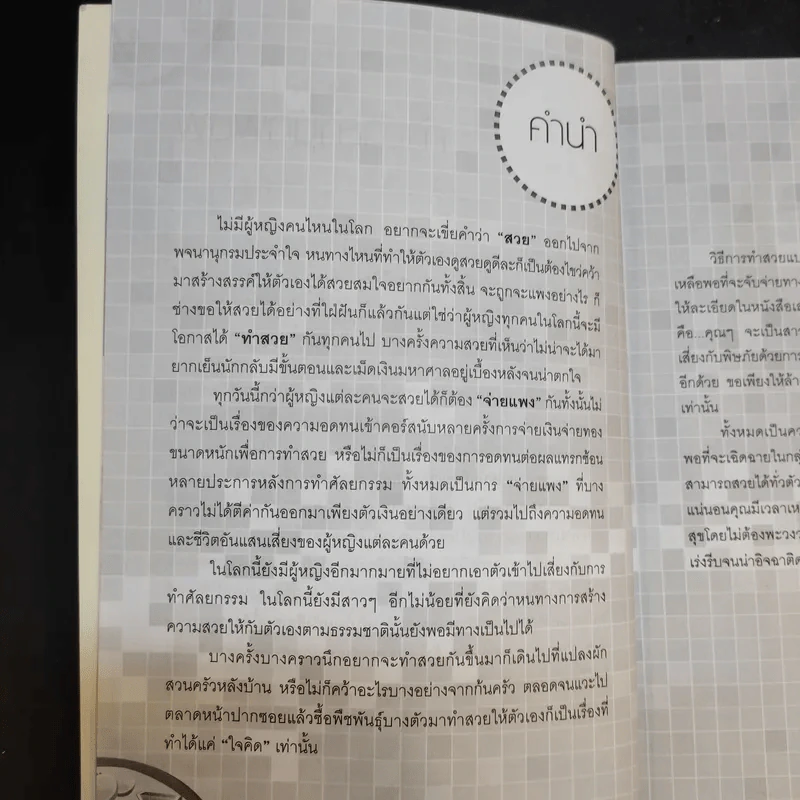 คำนำ
ไม่มีผู้หญิงคนไหนในโลก อยากจะเขี่ยคำว่า “สวย” ออกไปจาก
พจนานุกรมประจำใจ หนทางไหนที่ทำให้ตัวเองดูสวยดูดีละก็เป็นต้องไขว่คว้า
มาสร้างสรรค์ให้ตัวเองได้สวยสมใจอยากกันทั้งสิ้น จะถูกจะแพงอย่างไร ก็
ช่างขอให้สวยได้อย่างที่ใฝ่ฝันก็แล้วกันแต่ใช่ว่าผู้หญิงทุกคนในโลกนี้จะมี
โอกาสได้ “ทำสวย” กันทุกคนไป บางครั้งความสวยที่เห็นว่าไม่น่าจะได้มา
ยากเย็นนักกลับมีขั้นตอนและเม็ดเงินมหาศาลอยู่เบื้องหลังจนน่าตกใจ
ทุกวันนี้กว่าผู้หญิงแต่ละคนจะสวยได้ก็ต้อง “จ่ายแพง” กันทั้งนั้นไม่
ว่าจะเป็นเรื่องของความอดทนเข้าคอร์สนับหลายครั้งการจ่ายเงินจ่ายทอง
ขนาดหนักเพื่อการทำสวย หรือไม่ก็เป็นเรื่องของการอดทนต่อผลแทรกซ้อน
หลายประการหลังการทำศัลยกรรม ทั้งหมดเป็นการ “จ่ายแพง” ที่บาง
คราวไม่ได้ตีค่ากันออกมาเพียงตัวเงินอย่างเดียว แต่รวมไปถึงความอดทน
และชีวิตอันแสนเสี่ยงของผู้หญิงแต่ละคนด้วย
ในโลกนี้ยังมีผู้หญิงอีกมากมายที่ไม่อยากเอาตัวเข้าไปเสี่ยงกับการ
ทำศัลยกรรม ในโลกนี้ยังมีสาวๆ อีกไม่น้อยที่ยังคิดว่าหนทางการสร้าง
ความสวยให้กับตัวเองตามธรรมชาตินั้นยังพอมีทางเป็นไปได้
บางครั้งบางคราวนึกอยากจะทำสวยกันขึ้นมาก็เดินไปที่แปลงผัก
สวนครัวหลังบ้าน หรือไม่ก็คว้าอะไรบางอย่างจากก้นครัว ตลอดจนแวะไป
ตลาดหน้าปากซอยแล้วซื้อพืชพันธุ์บางตัวมาทำสวยให้ตัวเองก็เป็นเรื่องที่
ทำได้แค่ “ใจคิด” เท่านั้น
วิธีการทำสวยแบ
เหลือพอที่จะจับจ่ายทา
ให้ละเอียดในหนังสือเล
คือ...คุณๆ จะเป็นสา
เสี่ยงกับพิษภัยด้วยการ
อีกด้วย ขอเพียงให้ล้า
เท่านั้น
ทั้งหมดเป็นคว
พอที่จะเฉิดฉายในกลุ
สามารถสวยได้ทั่วตัว
แน่นอนคุณมีเวลาเห
สุขโดยไม่ต้องพะวงว
เร่งรีบจนน่าอิจฉาติด